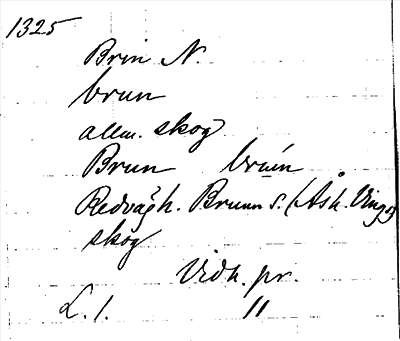 1325
Brin N.
brun
allm. skog
Brun bruin
Redvägh. Brunn s. (Ås h. Ving s)
skog
Vidh. pr.
L. 1. 11